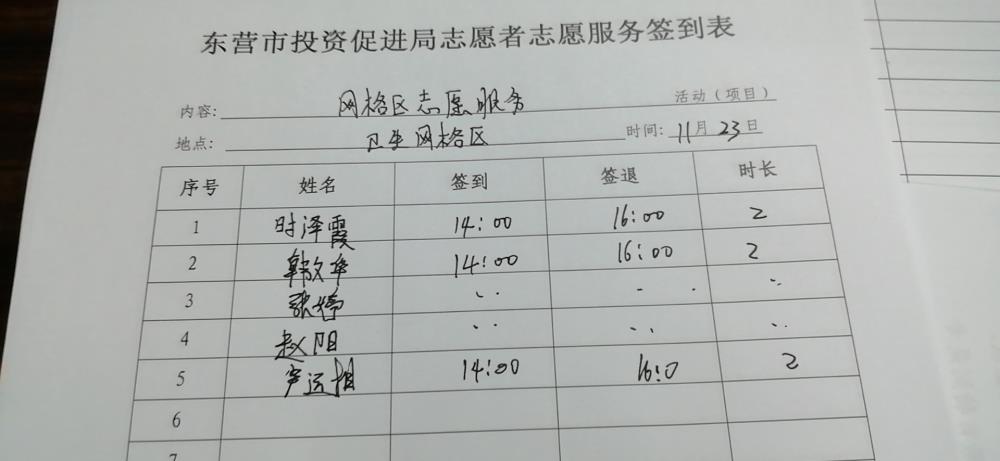 东营市投资促进局志愿者志愿服务签到表
内容: 网格区志愿服务 活动（项目）
地点: 卫生网格区 时间: 11月23日
序号 姓名 签到 签退 时长
1 时泽霞 14:00 16:00 2
2 韩放华 14:00 16:00 2
3 张婷
4 赵阳
5 14:00 16:0 2
6
7